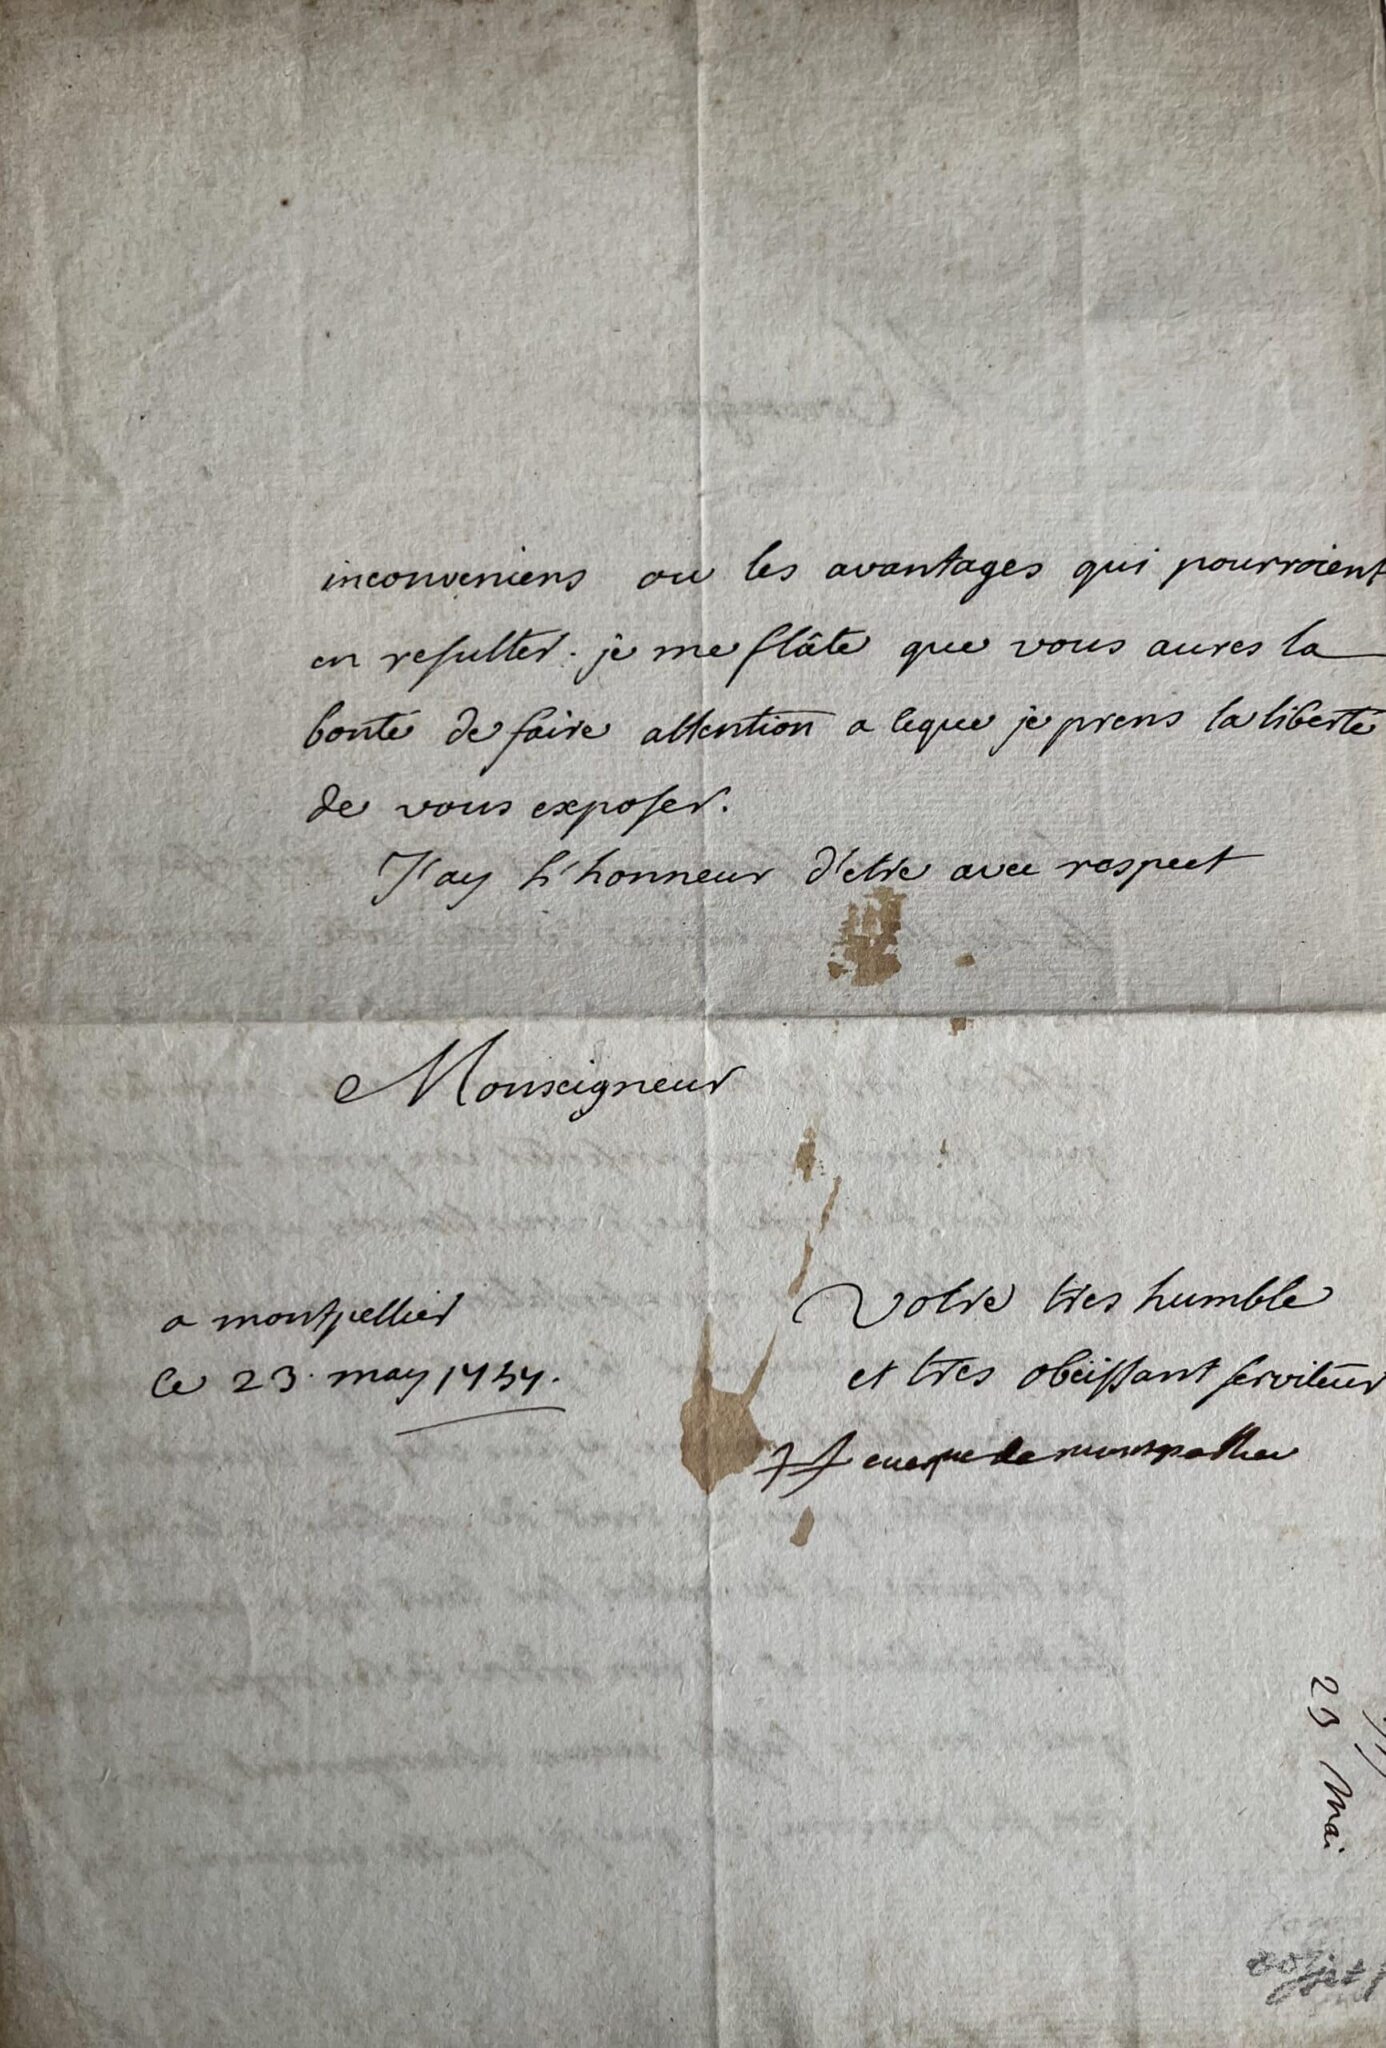 inconveniens ou les avantages qui pourroient
en resulter. je me flâte que vous aures la
bonté de faire attention a ceque je prens la liberté
de vous exposer.
J'ay l'honneur d'etre avec respect
Monseigneur
a montpellier
ce 23. may 1757.
Votre tres humble
et tres obeïssant serviteur
eveque de montpellier
23 Mai